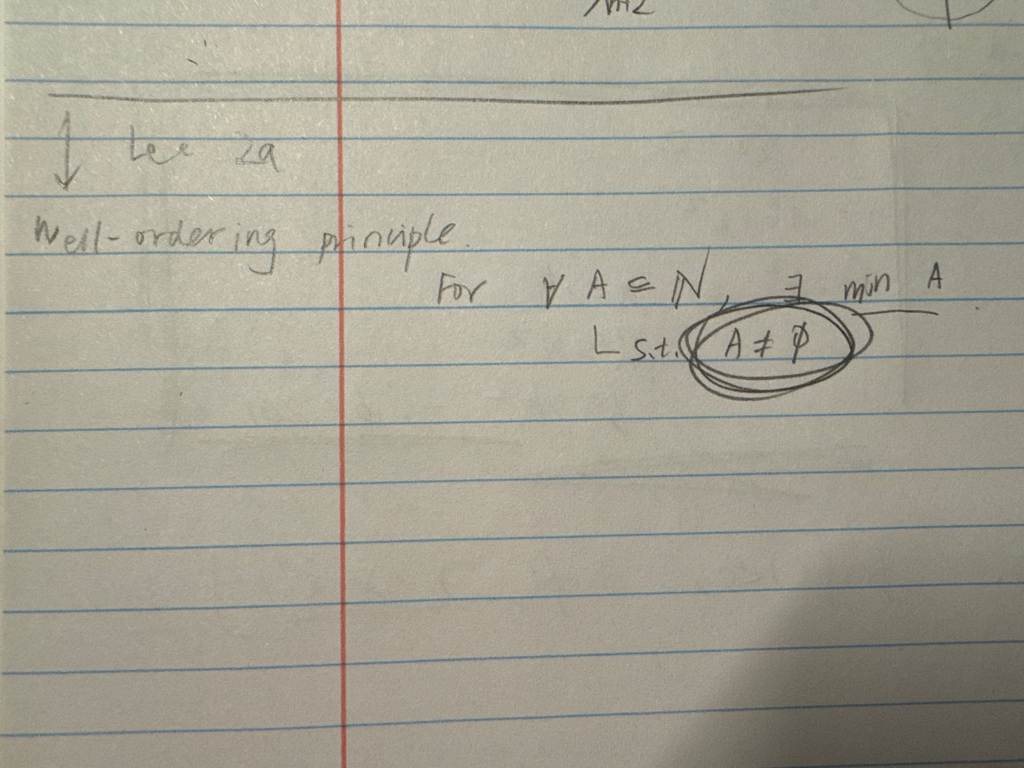 Lec 2a
Well-ordering principle.
For ∀ A ⊆ ℕ, ∃ min A
s.t. A ≠ ∅